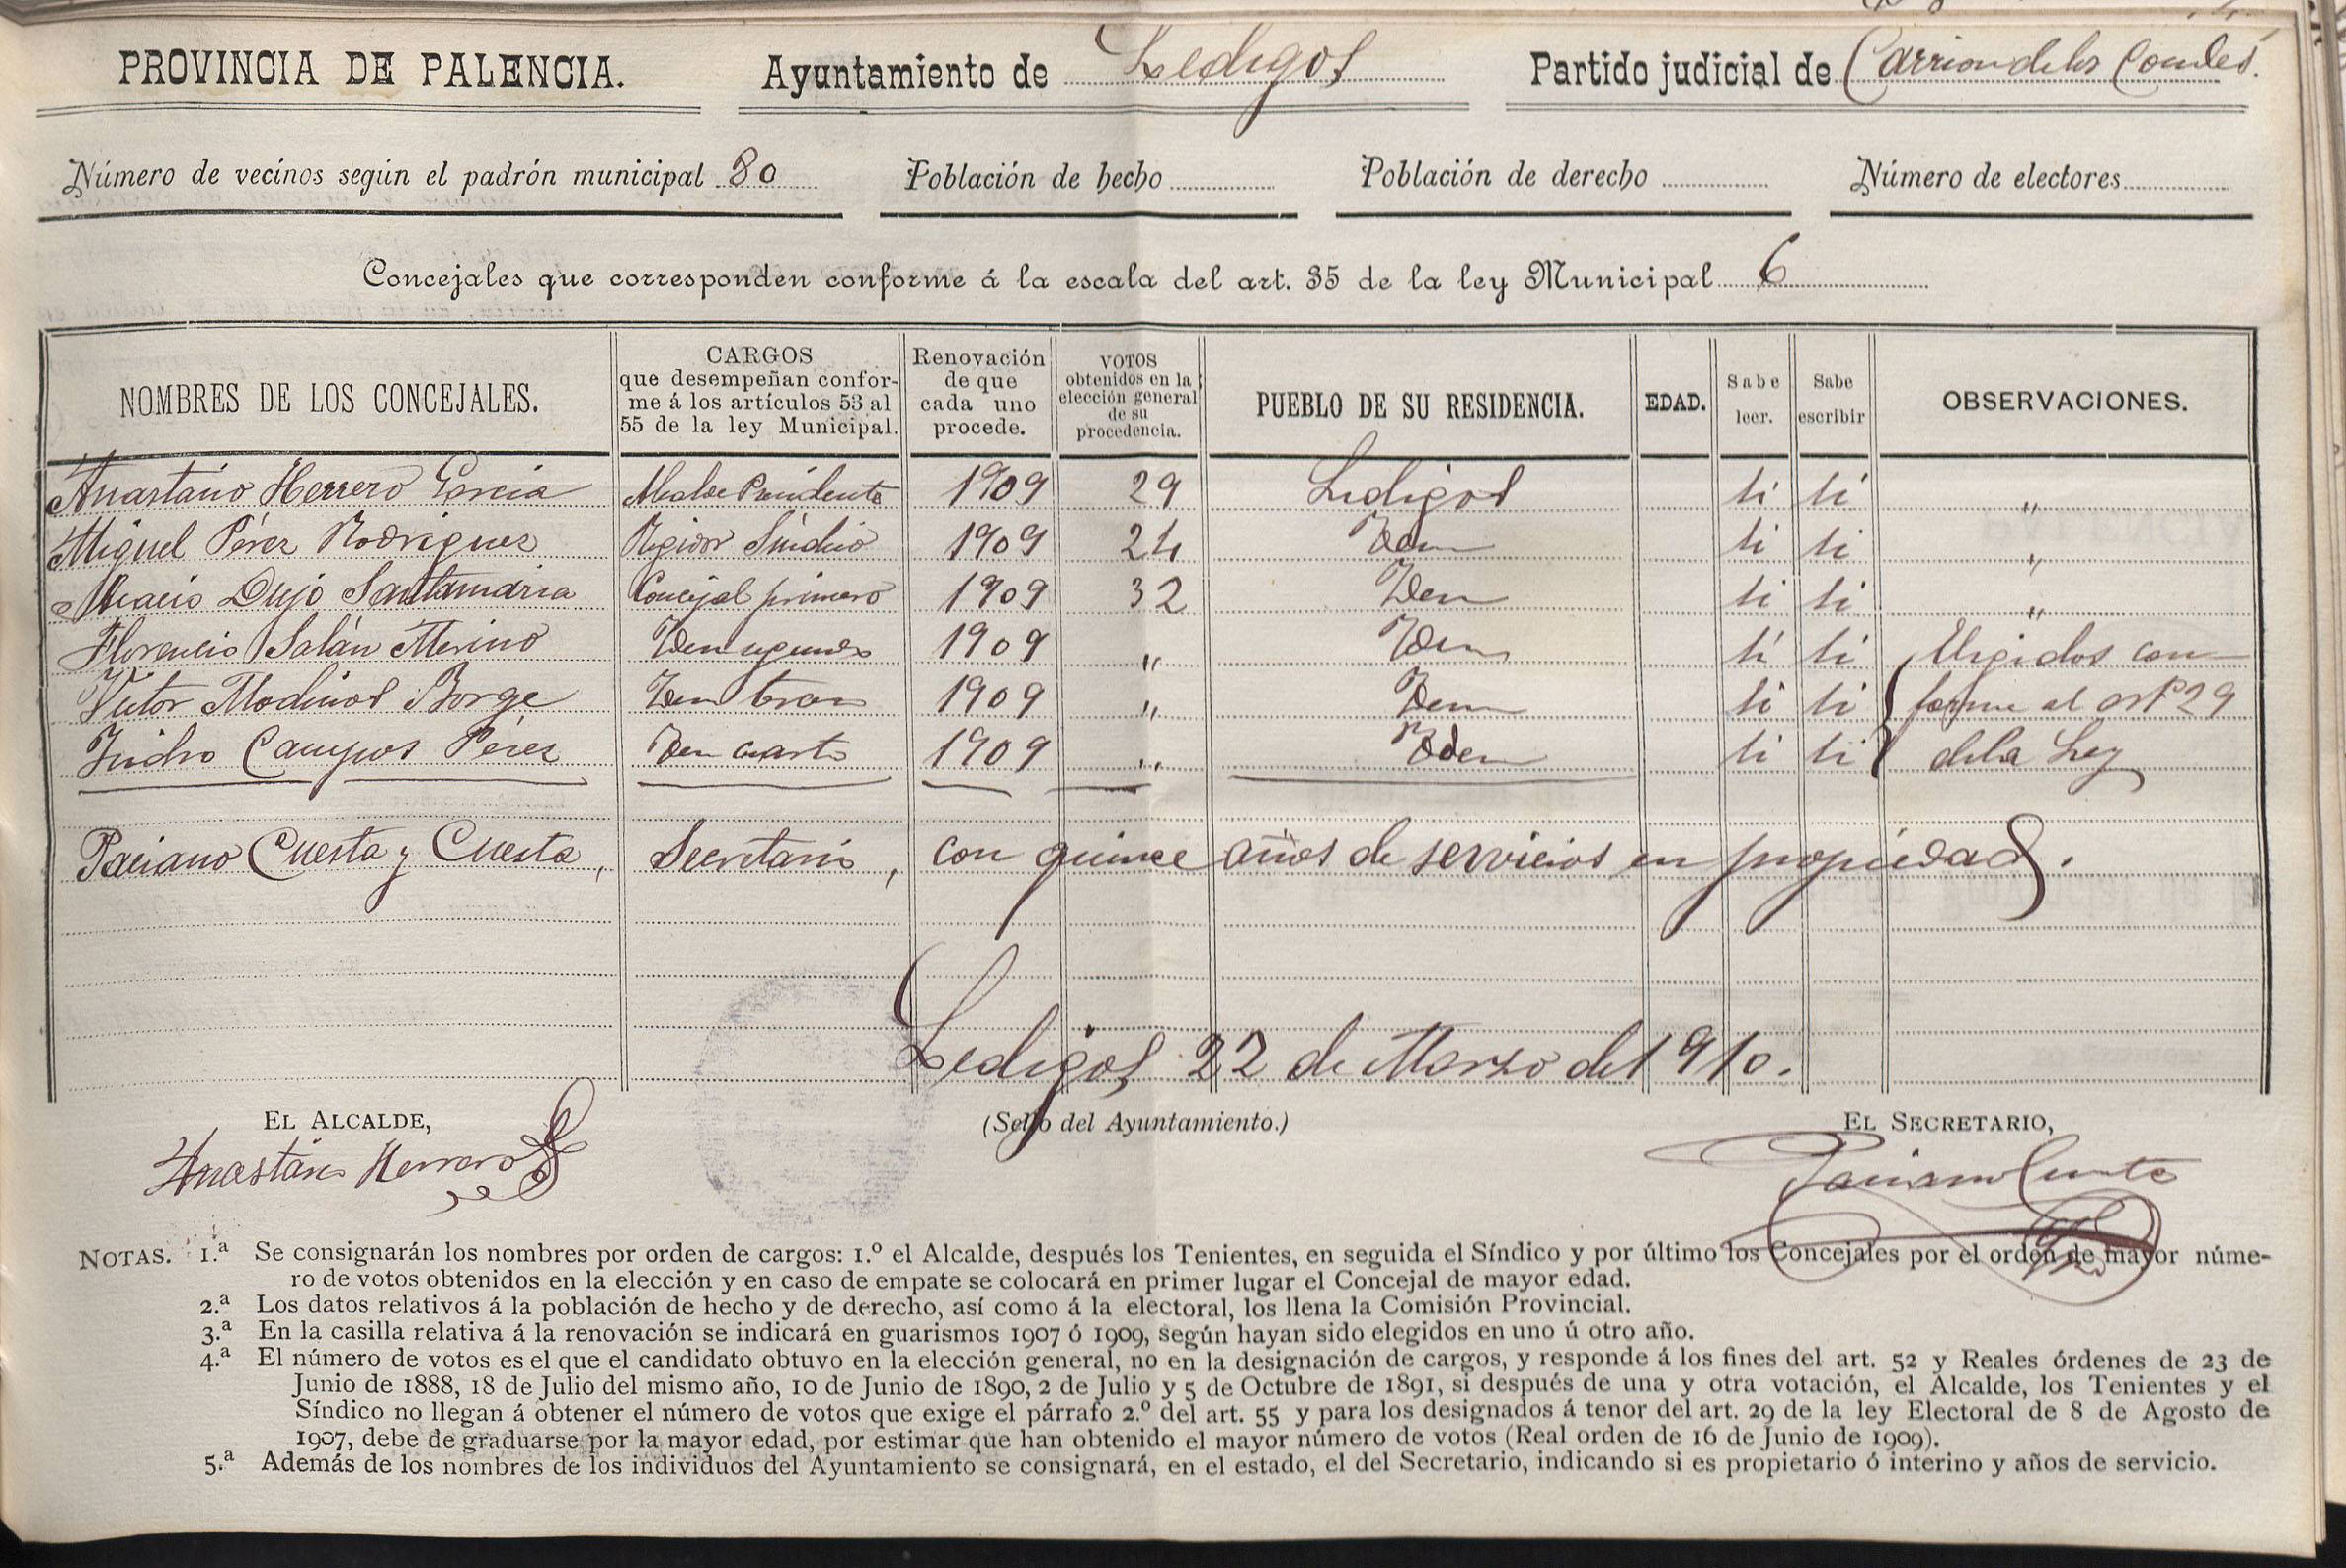 PROVINCIA DE PALENCIA. Ayuntamiento de Ledigos Partido judicial de Carrion de los Condes.
Número de vecinos según el padrón municipal 80 Población de hecho Población de derecho Número de electores
Concejales que corresponden conforme á la escala del art. 35 de la ley Municipal 6
NOMBRES DE LOS CONCEJALES. CARGOS que desempeñan conforme á los artículos 53 al 55 de la ley Municipal. Renovación de que cada uno procede. VOTOS obtenidos en la elección general de su procedencia. PUEBLO DE SU RESIDENCIA. EDAD. Sabe leer. Sabe escribir OBSERVACIONES.
Anastasio Herrero Garcia Alcalde Presidente 1909 29 Ledigos si si "
Miguel Pérez Rodriguez Regidor Síndico 1909 24 Idem si si "
Acacio Dujo Santamaria Concejal primero 1909 32 Idem si si "
Florencio Salán Merino Idem segundo 1909 " Idem si si Elegidos con
Victor Modinos Borge Idem tercero 1909 " Idem si si forme al artº 29
Isidro Campos Pérez Idem cuarto 1909 " Idem si si de la Ley
Paciano Cuesta y Cuesta, Secretario, con quince años de servicios en propiedad.
Ledigos 22 de Marzo de 1910.
EL ALCALDE, (Sello del Ayuntamiento.) EL SECRETARIO,
Anastasio Herrero Paciano Cuesta
NOTAS. 1.ª Se consignarán los nombres por orden de cargos: 1.º el Alcalde, después los Tenientes, en seguida el Síndico y por último los Concejales por el orden de mayor núme-
ro de votos obtenidos en la elección y en caso de empate se colocará en primer lugar el Concejal de mayor edad.
2.ª Los datos relativos á la población de hecho y de derecho, así como á la electoral, los llena la Comisión Provincial.
3.ª En la casilla relativa á la renovación se indicará en guarismos 1907 ó 1909, según hayan sido elegidos en uno ú otro año.
4.ª El número de votos es el que el candidato obtuvo en la elección general, no en la designación de cargos, y responde á los fines del art. 52 y Reales órdenes de 23 de
Junio de 1888, 18 de Julio del mismo año, 10 de Junio de 1890, 2 de Julio y 5 de Octubre de 1891, si después de una y otra votación, el Alcalde, los Tenientes y el
Síndico no llegan á obtener el número de votos que exige el párrafo 2.º del art. 55 y para los designados á tenor del art. 29 de la ley Electoral de 8 de Agosto de
1907, debe de graduarse por la mayor edad, por estimar que han obtenido el mayor número de votos (Real orden de 16 de Junio de 1909).
5.ª Además de los nombres de los individuos del Ayuntamiento se consignará, en el estado, el del Secretario, indicando si es propietario ó interino y años de servicio.